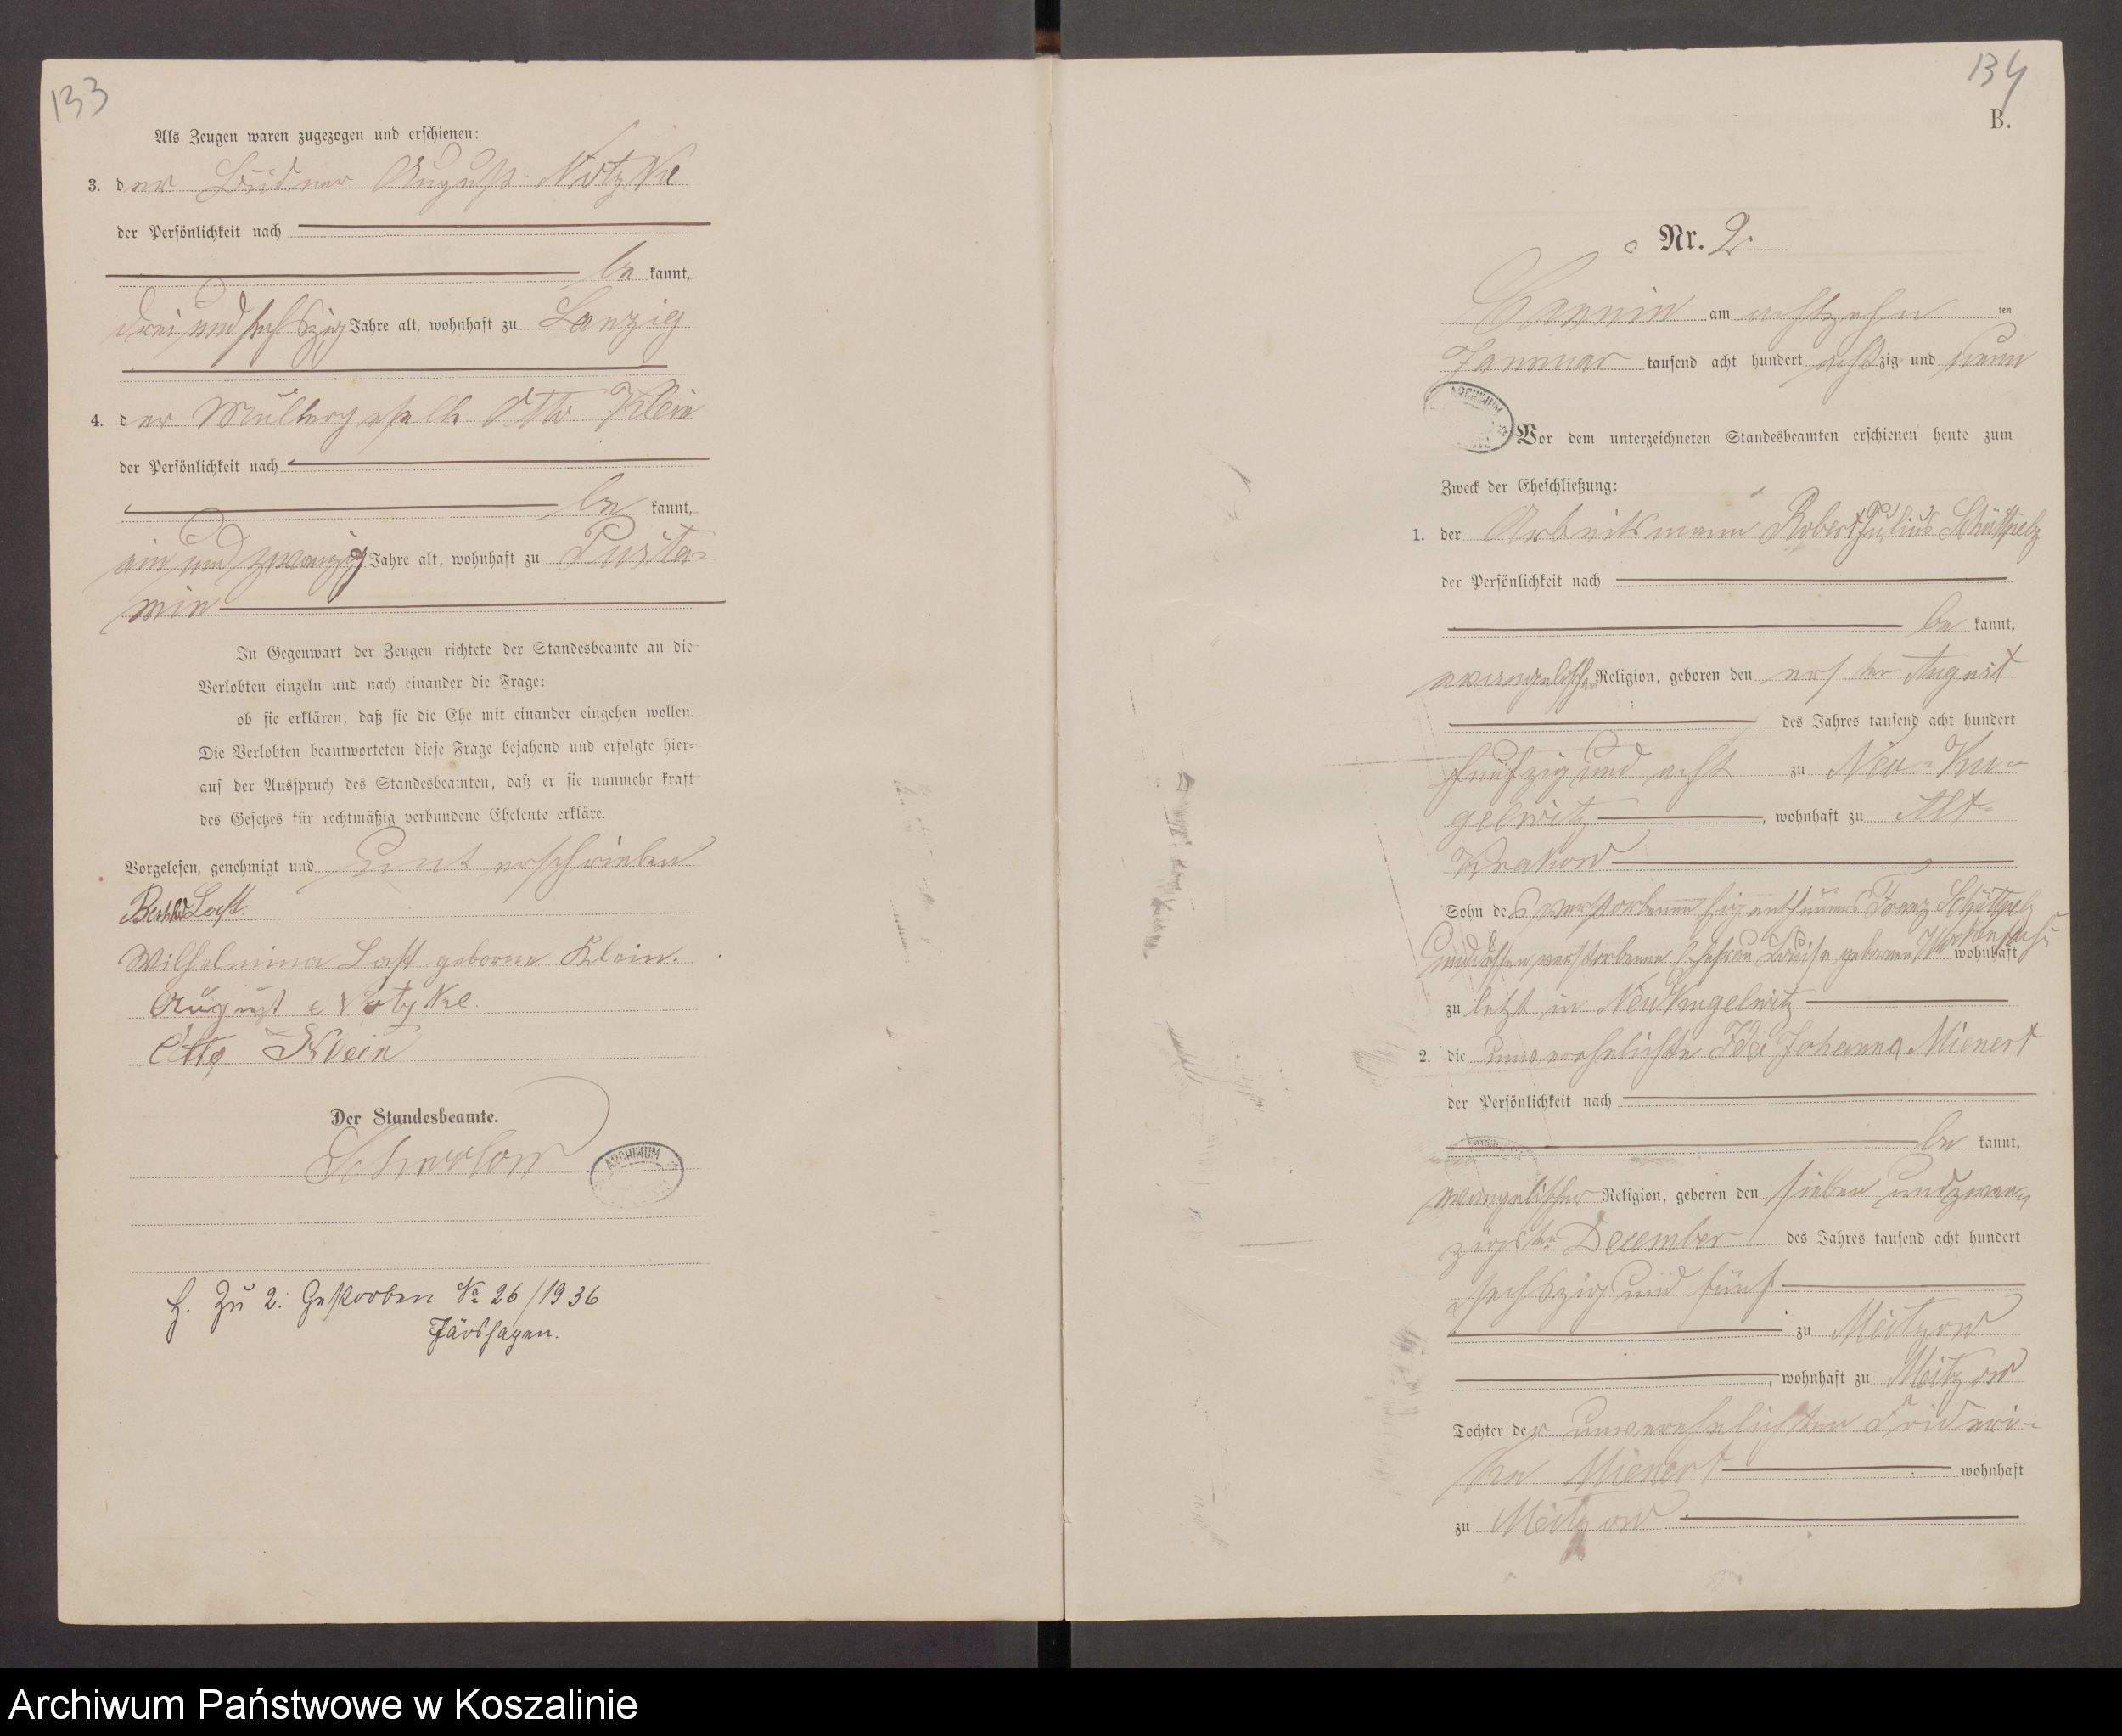 133
Als Zeugen waren zugezogen und erschienen:
3. der Büdner August Notzke
der Persönlichkeit nach
be kannt,
drei und sechszig Jahre alt, wohnhaft zu Lanzig
4. der Müllergeselle Otto Klein
der Persönlichkeit nach
be kannt,
ein und zwanzig Jahre alt, wohnhaft zu Pusta-
min
In Gegenwart der Zeugen richtete der Standesbeamte an die
Verlobten einzeln und nach einander die Frage:
ob sie erklären, daß sie die Ehe mit einander eingehen wollen.
Die Verlobten beantworteten diese Frage bejahend und erfolgte hier-
auf der Ausspruch des Standesbeamten, daß er sie nunmehr kraft
des Gesetzes für rechtmäßig verbundene Eheleute erkläre.
Vorgelesen, genehmigt und unterschrieben
Last.
Wilhelmina Last geborne Klein.
August Notzke.
Otto Klein
Der Standesbeamte.
ARCHIWUM
H. Zu 2. Gestorben № 26/1936
Järshagen.
134
B.
Nr. 2.
am achtzehn ten
Januar tausend acht hundert achtzig und neun
ARCHIWUM
Vor dem unterzeichneten Standesbeamten erschienen heute zum
Zweck der Eheschließung:
1. der Arbeitsmann Robert Julius Schüttpelz
der Persönlichkeit nach
be kannt,
evangelischer Religion, geboren den ersten August
des Jahres tausend acht hundert
fünfzig und acht zu Neu-Ku-
gelwitz, wohnhaft zu Alt-
Krakow
Sohn des verstorbenen Eigenthümers Franz Schüttpelz
und dessen verstorbenen Ehefrau Louise geborenen wohnhaft
zu letzt in Neu Kugelwitz
2. die unverehelichte Ida Johanna Mienert
der Persönlichkeit nach
be kannt,
evangelischer Religion, geboren den sieben und zwan-
zigsten December des Jahres tausend acht hundert
sechszig und fünf
zu Meitzow
, wohnhaft zu Meitzow
Tochter der unverehelichten Frideri-
ke Mienert wohnhaft
zu Meitzow
Archiwum Państwowe w Koszalinie